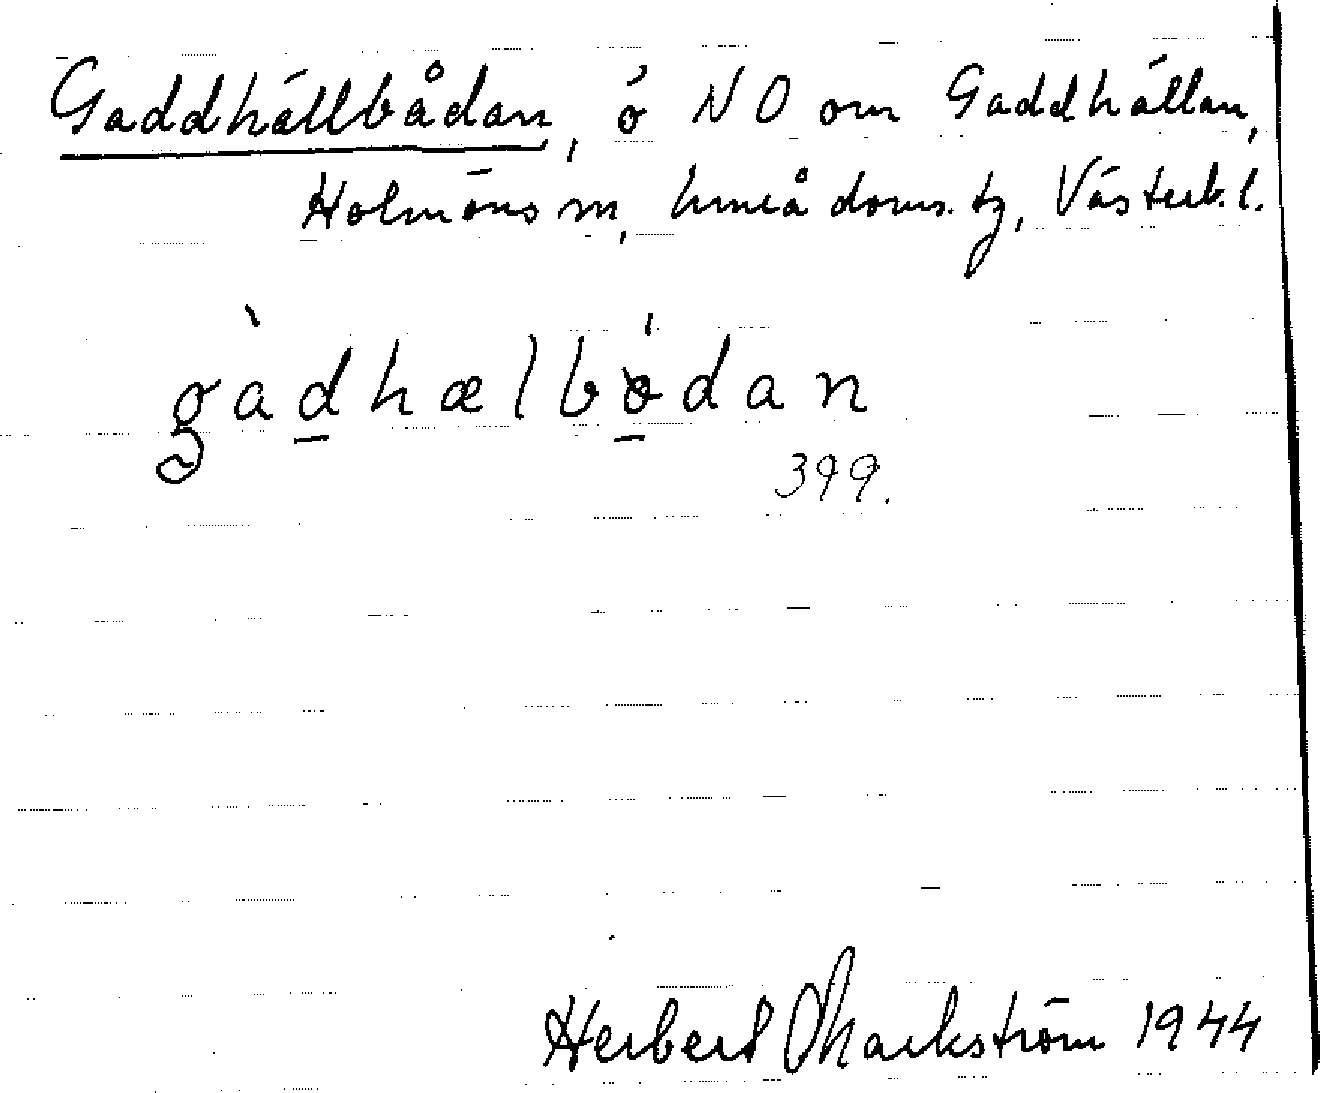 Gaddhällbådan, ö NO om Gaddhällan,
Holmöns sn, Umeå doms. tg, Västerb. l.
gàdhælbódan
399.
Herbert Markström 1944